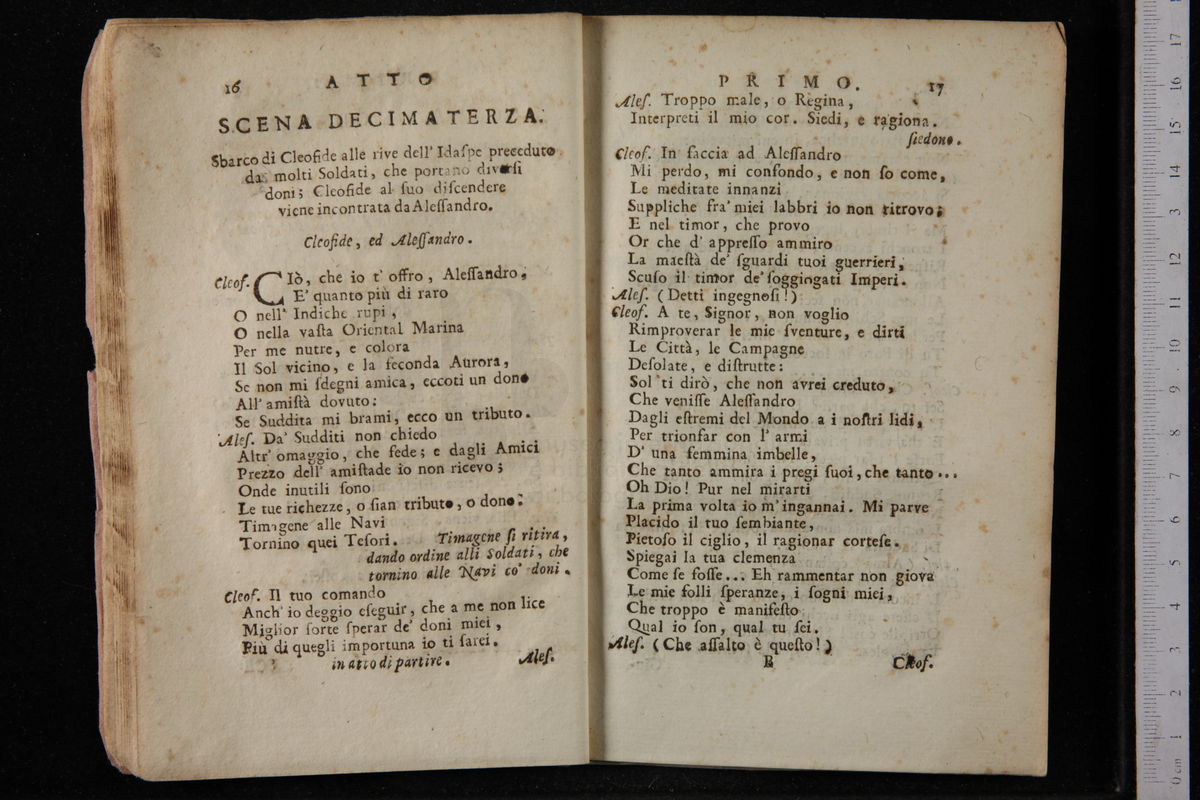 16 ATTO
SCENA DECIMATERZA.
Sbarco di Cleofide alle rive dell' Idaſpe preceduto
da molti Soldati, che portano diverſi
doni; Cleofide al ſuo diſcendere
viene incontrata da Aleſſandro.
Cleofide, ed Aleſſandro.
Cleof. CIò, che io t' offro, Aleſſandro,
E' quanto più di raro
O nell' Indiche rupi,
O nella vaſta Oriental Marina
Per me nutre, e colora
Il Sol vicino, e la feconda Aurora,
Se non mi ſdegni amica, eccoti un dono
All' amiſtà dovuto:
Se Suddita mi brami, ecco un tributo.
Aleſ. Da' Sudditi non chiedo
Altr' omaggio, che fede; e dagli Amici
Prezzo dell' amiſtade io non ricevo;
Onde inutili ſono
Le tue richezze, o ſian tributo, o dono:
Timagene alle Navi
Tornino quei Teſori. Timagene ſi ritira,
dando ordine alli Soldati, che
tornino alle Navi co' doni.
Cleof. Il tuo comando
Anch' io deggio eſeguir, che a me non lice
Miglior ſorte ſperar de' doni miei,
Più di quegli importuna io ti ſarei.
in atto di partire. Aleſ.
PRIMO. 17
Aleſ. Troppo male, o Regina,
Interpreti il mio cor. Siedi, e ragiona.
ſiedono.
Cleof. In faccia ad Aleſſandro
Mi perdo, mi confondo, e non ſo come,
Le meditate innanzi
Suppliche fra' miei labbri io non ritrovo;
E nel timor, che provo
Or che d' appreſſo ammiro
La maeſtà de' ſguardi tuoi guerrieri,
Scuſo il timor de' ſoggiogati Imperi.
Aleſ. (Detti ingegnoſi!)
Cleof. A te, Signor, non voglio
Rimproverar le mie ſventure, e dirti
Le Città, le Campagne
Deſolate, e diſtrutte:
Sol ti dirò, che non avrei creduto,
Che veniſſe Aleſſandro
Dagli eſtremi del Mondo a i noſtri lidi,
Per trionfar con l' armi
D' una femmina imbelle,
Che tanto ammira i pregi ſuoi, che tanto...
Oh Dio! Pur nel mirarti
La prima volta io m' ingannai. Mi parve
Placido il tuo ſembiante,
Pietoſo il ciglio, il ragionar corteſe.
Spiegai la tua clemenza
Come ſe foſſe... Eh rammentar non giova
Le mie folli ſperanze, i ſogni miei,
Che troppo è manifeſto
Qual io ſon, qual tu ſei.
Aleſ. (Che aſſalto è queſto!)
B Cleof.
0 cm 1 2 3 4 5 6 7 8 9 10 11 12 13 14 15 16 17